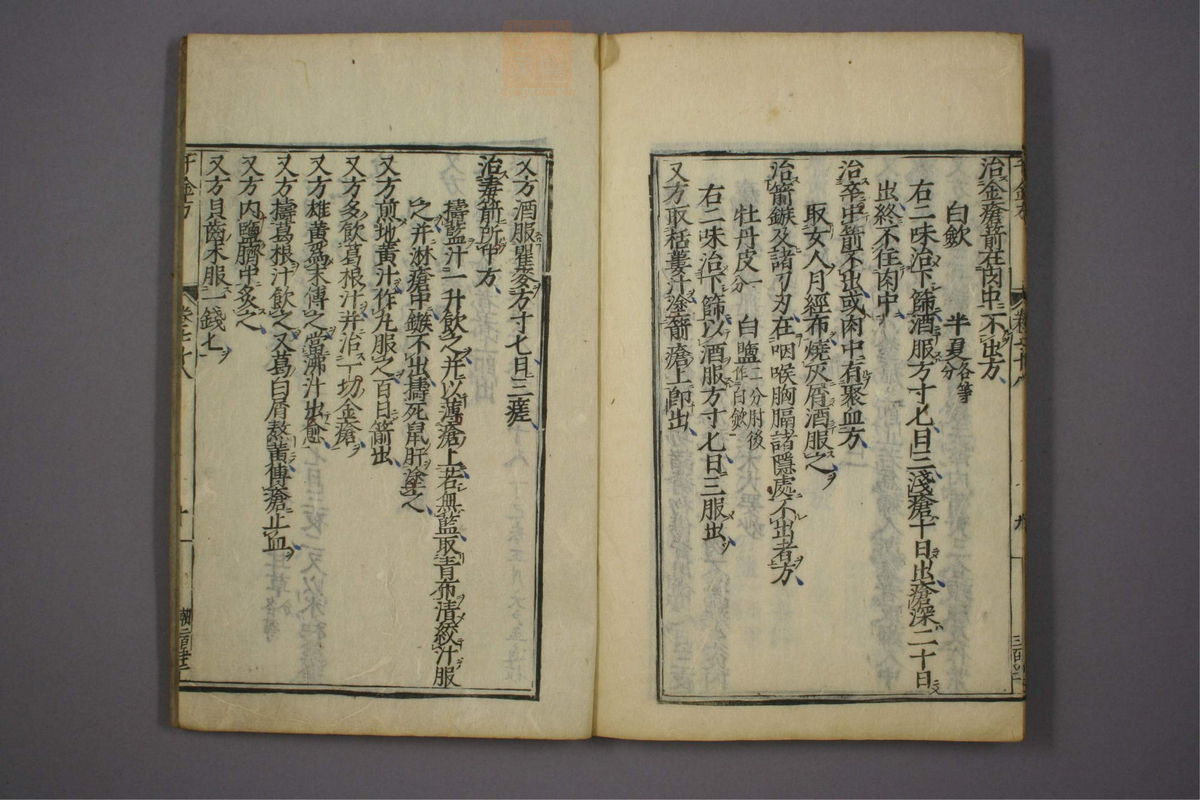 治金瘡箭在肉中不出方
白斂　半夏各等分
右二味治下篩酒服方寸匕日三淺瘡十日出瘡深二十日
出終不住肉中
治卒中箭不出或肉中有聚血方
取女人月經布燒灰屑酒服之
治箭鏃及諸刀刃在咽喉胸膈諸隱處不出者方
牡丹皮一分　白鹽二分肘後作白斂
右二味治下篩以酒服方寸匕日三服出
又方取栝蔞汁塗箭瘡上即出
又方酒服瞿麥方寸匕日三瘥
治毒箭所中方
擣藍汁一升飲之并以薄瘡上若無藍取青布漬絞汁服
之并淋瘡中鏃不出擣死鼠肝塗之
又方煎地黃汁作丸服之百日箭出
又方多飲葛根汁并治一切金瘡
又方雄黃為末傅之當沸汁出愈
又方擣葛根汁飲之又葛白屑熬黃傅瘡止血
又方內鹽臍中灸之
又方貝齒末服一錢匕
千金方
卷七十八
十